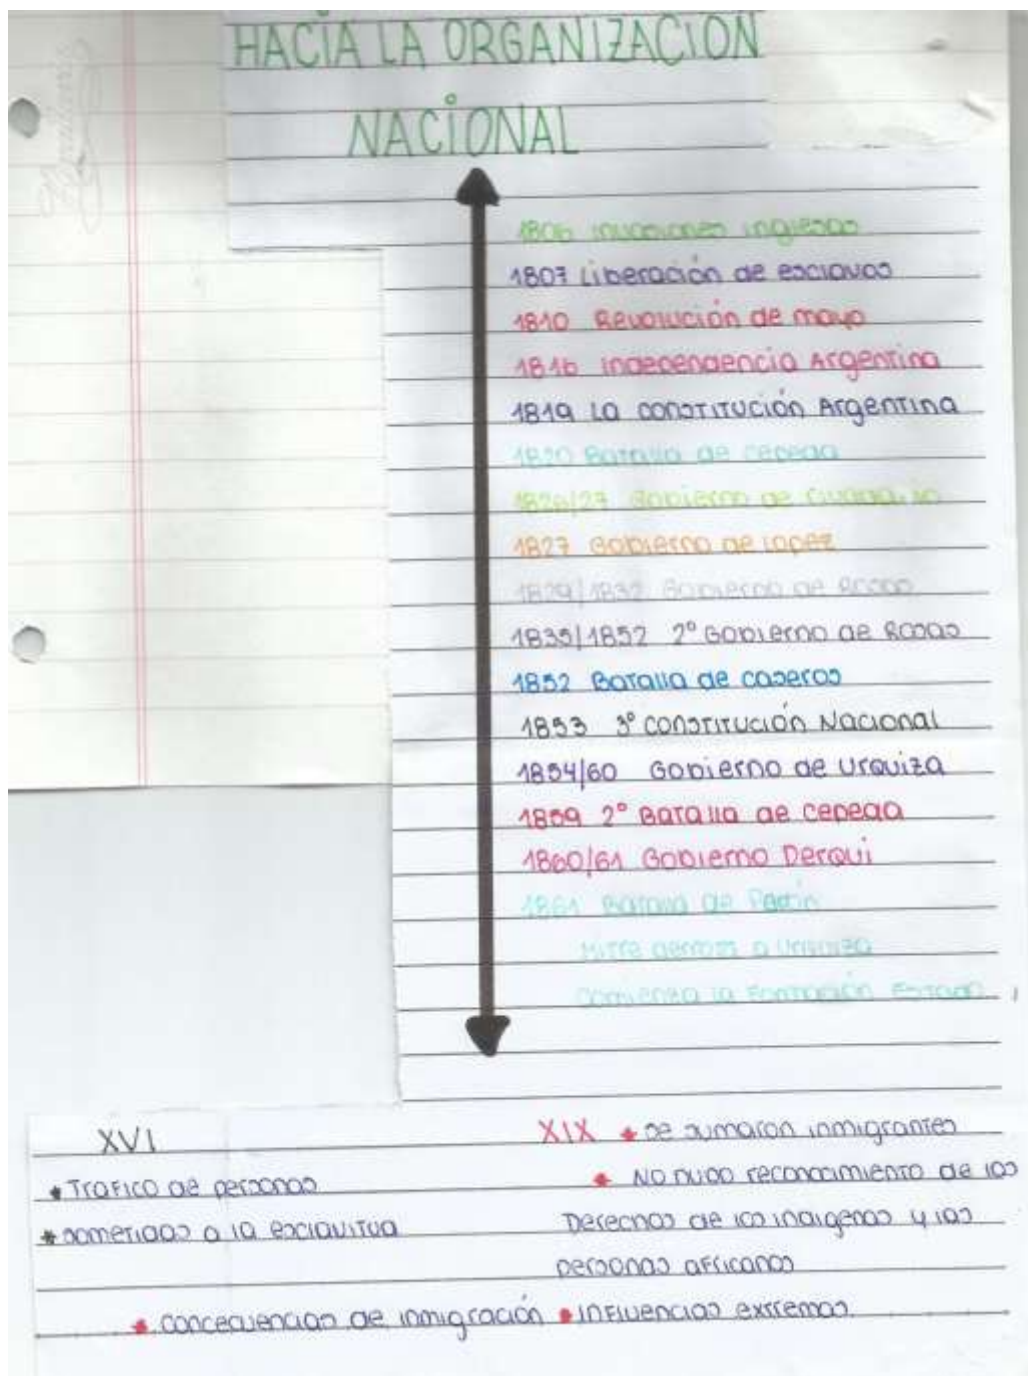 HACIA LA ORGANIZACIÓN
NACIONAL
1806 invasiones inglesas
1807 Liberación de esclavos
1810 Revolución de mayo
1816 independencia Argentina
1819 La constitución Argentina
1820 Batalla de cepeda
1826/27 Gobierno de
1827 Gobierno de Lopez
1829/1832 Gobierno de Rosas
1835/1852 2° Gobierno de Rosas
1852 Batalla de caseros
1853 3° constitución Nacional
1854/60 Gobierno de Urquiza
1859 2° Batalla de cepeda
1860/61 Gobierno Derqui
1861 Batalla de Pavón
Mitre derrota a Urquiza
comienza la Formación Estado
XVI
* Trafico de personas
* sometidas a la esclavitud
XIX * se sumaron inmigrantes
* No hubo reconocimiento de los
Derechos de los indigenas y las
personas africanas
* concecuencias de inmigración * influencias extremas.